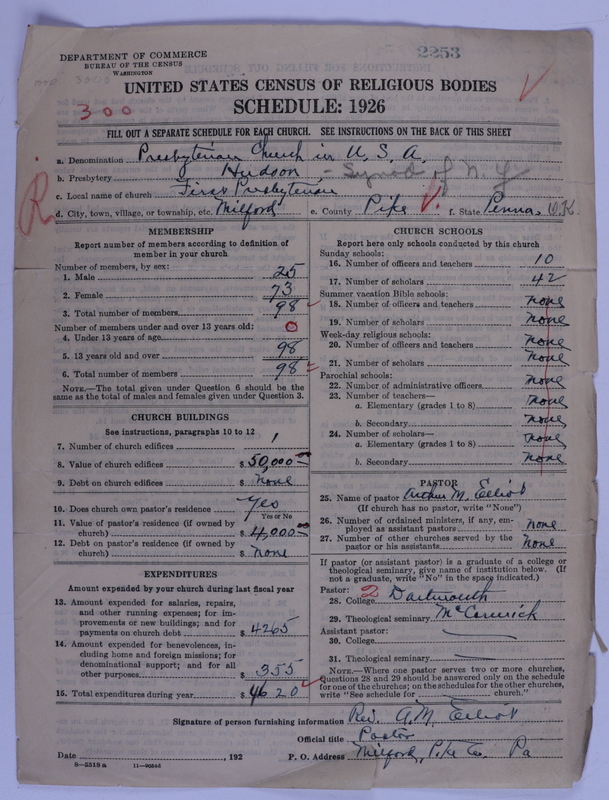 2253
DEPARTMENT OF COMMERCE
BUREAU OF THE CENSUS
WASHINGTON
UNITED STATES CENSUS OF RELIGIOUS BODIES
300
SCHEDULE: 1926
FILL OUT A SEPARATE SCHEDULE FOR EACH CHURCH. SEE INSTRUCTIONS ON THE BACK OF THIS SHEET
a. Denomination Presbyterian Church in U. S. A.
b. Presbytery Hudson - Synod of N. Y
c. Local name of church First Presbyterian
d. City, town, village, or township, etc. Milford e. County Pike f. State Penna. O.K.
R
MEMBERSHIP
Report number of members according to definition of
member in your church
Number of members, by sex:
1. Male 25
2. Female 73
3. Total number of members 98
Number of members under and over 13 years old:
4. Under 13 years of age 0
5. 13 years old and over 98
6. Total number of members 98
NOTE.—The total given under Question 6 should be
same as the total of males and females given under Question 3.
CHURCH BUILDINGS
See instructions, paragraphs 10 to 12
7. Number of church edifices 1
8. Value of church edifices $ 50,000
9. Debt on church edifices $ none
10. Does church own pastor's residence yes
Yes or No
11. Value of pastor's residence (if owned by
church) $ 4,000
12. Debt on pastor's residence (if owned by
church) $ none
EXPENDITURES
Amount expended by your church during last fiscal year
13. Amount expended for salaries, repairs,
and other running expenses; for im-
provements or new buildings; and for
payments on church debt $ 4265
14. Amount expended for benevolences, in-
cluding home and foreign missions; for
denominational support; and for all
other purposes $ 355
15. Total expenditures during year $ 4620
CHURCH SCHOOLS
Report here only schools conducted by this church
Sunday schools:
16. Number of officers and teachers 10
17. Number of scholars 42
Summer vacation Bible schools:
18. Number of officers and teachers none
19. Number of scholars none
Week-day religious schools:
20. Number of officers and teachers none
21. Number of scholars none
Parochial schools:
22. Number of administrative officers none
23. Number of teachers—
a. Elementary (grades 1 to 8) none
b. Secondary none
24. Number of scholars—
a. Elementary (grades 1 to 8) none
b. Secondary none
PASTOR
25. Name of pastor Arthur M. Elliot
(If church has no pastor, write "None")
26. Number of ordained ministers, if any, em-
ployed as assistant pastors none
27. Number of other churches served by the
pastor or his assistants none
If pastor (or assistant pastor) is a graduate of a college or
theological seminary, give name of institution below. (If
not a graduate, write "No" in the space indicated.)
Pastor:
28. College 2 Dartmouth
29. Theological seminary McCormick
Assistant pastor:
30. College
31. Theological seminary
NOTE.—Where one pastor serves two or more churches,
Questions 28 and 29 should be answered only on the schedule
for one of the churches; on the schedules for the other churches,
write "See schedule for church."
Signature of person furnishing information Rev. A. M. Elliot
Official title Pastor
Date , 192 P. O. Address Milford, Pike Co. Pa
8-5518a 11-9656d